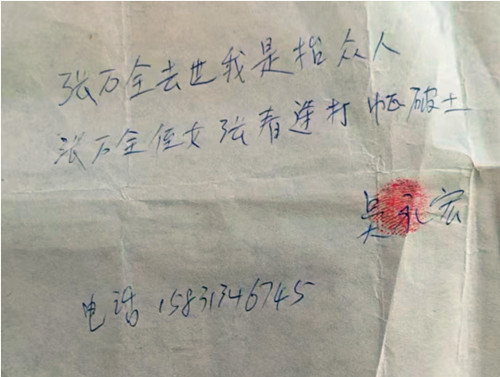 张万全去世我是抬众人
张万全侄女张春莲打幡破土
吴永宏
电话 15831346745